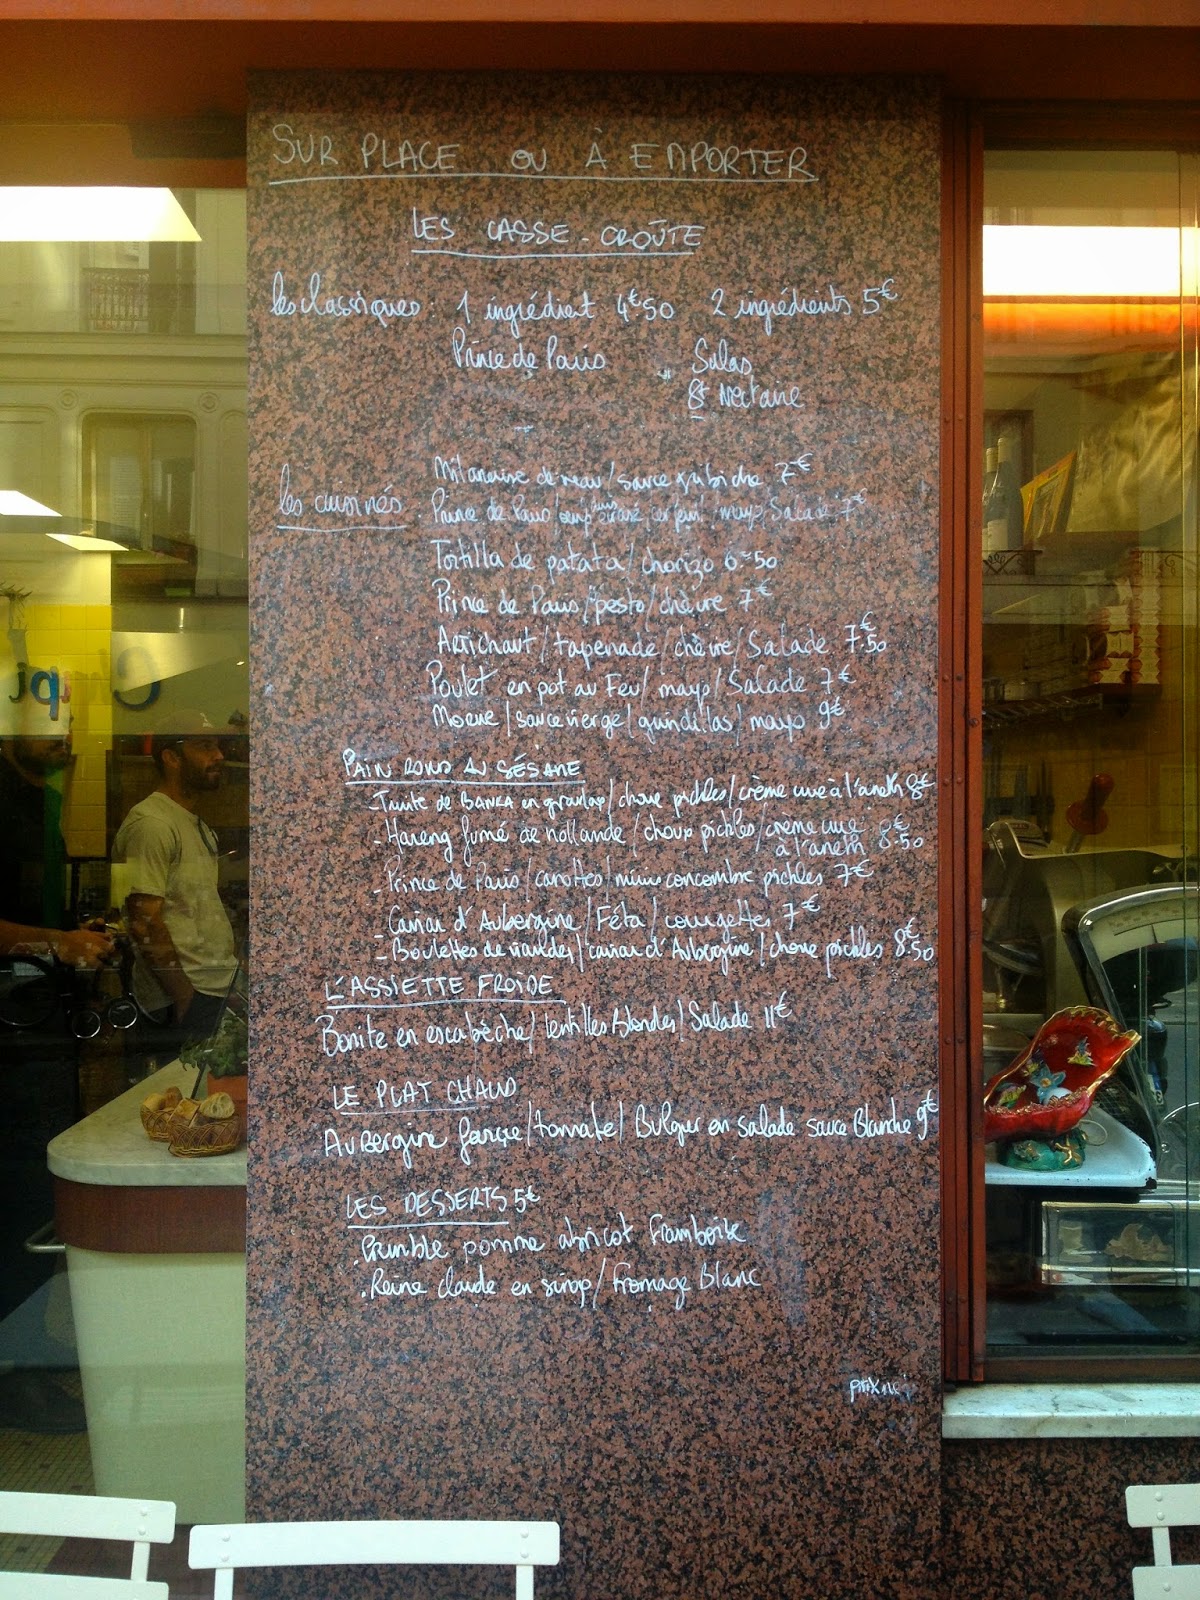 SUR PLACE OU À EMPORTER
LES CASSE-CROÛTE
les classiques : 1 ingrédient 4€50 2 ingrédients 5€
Prince de Paris Salas
St Nectaire
Milanaise de veau/sauce gribiche 7€
les cuisinés Prince de Paris / mayo/Salade 7€
Tortilla de patata/chorizo 6€50
Prince de Paris/pesto/chèvre 7€
Artichaut/tapenade/chèvre/Salade 7€50
Poulet en pot au Feu/mayo/Salade 7€
Morue/sauce vierge/guindillas/mayo 9€
PAIN ROND AU SÉSAME
- Truite de BANCA en gravlax/choux pickles/crème crue à l'aneth 8€
- Hareng fumé de hollande/choux pickles/crème crue à l'aneth 8€50
- Prince de Paris/carottes/minis concombre pickles 7€
- Caviar d'Aubergine/Féta/courgettes 7€
- Boulettes de viandes/caviar d'Aubergine/choux pickles 8€50
L'ASSIETTE FROIDE
Bonite en escabèche/lentilles blondes/Salade 11€
LE PLAT CHAUD
Aubergine farcie/tomate/Bulgur en salade sauce Blanche 9€
LES DESSERTS 5€
. Crumble pomme abricot Framboise
. Reine claude en sirop/Fromage Blanc
prix net